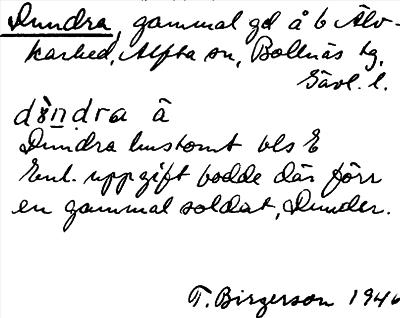 Dundra, gammal gd å b Älv-
karhed, Alfta sn, Bollnäs tg,
Gävl. l.
dø̀ndra å
Dundra hustomt vls E
Enl. uppgift bodde där förr
en gammal soldat, Dunder.
T. Birgerson 1946